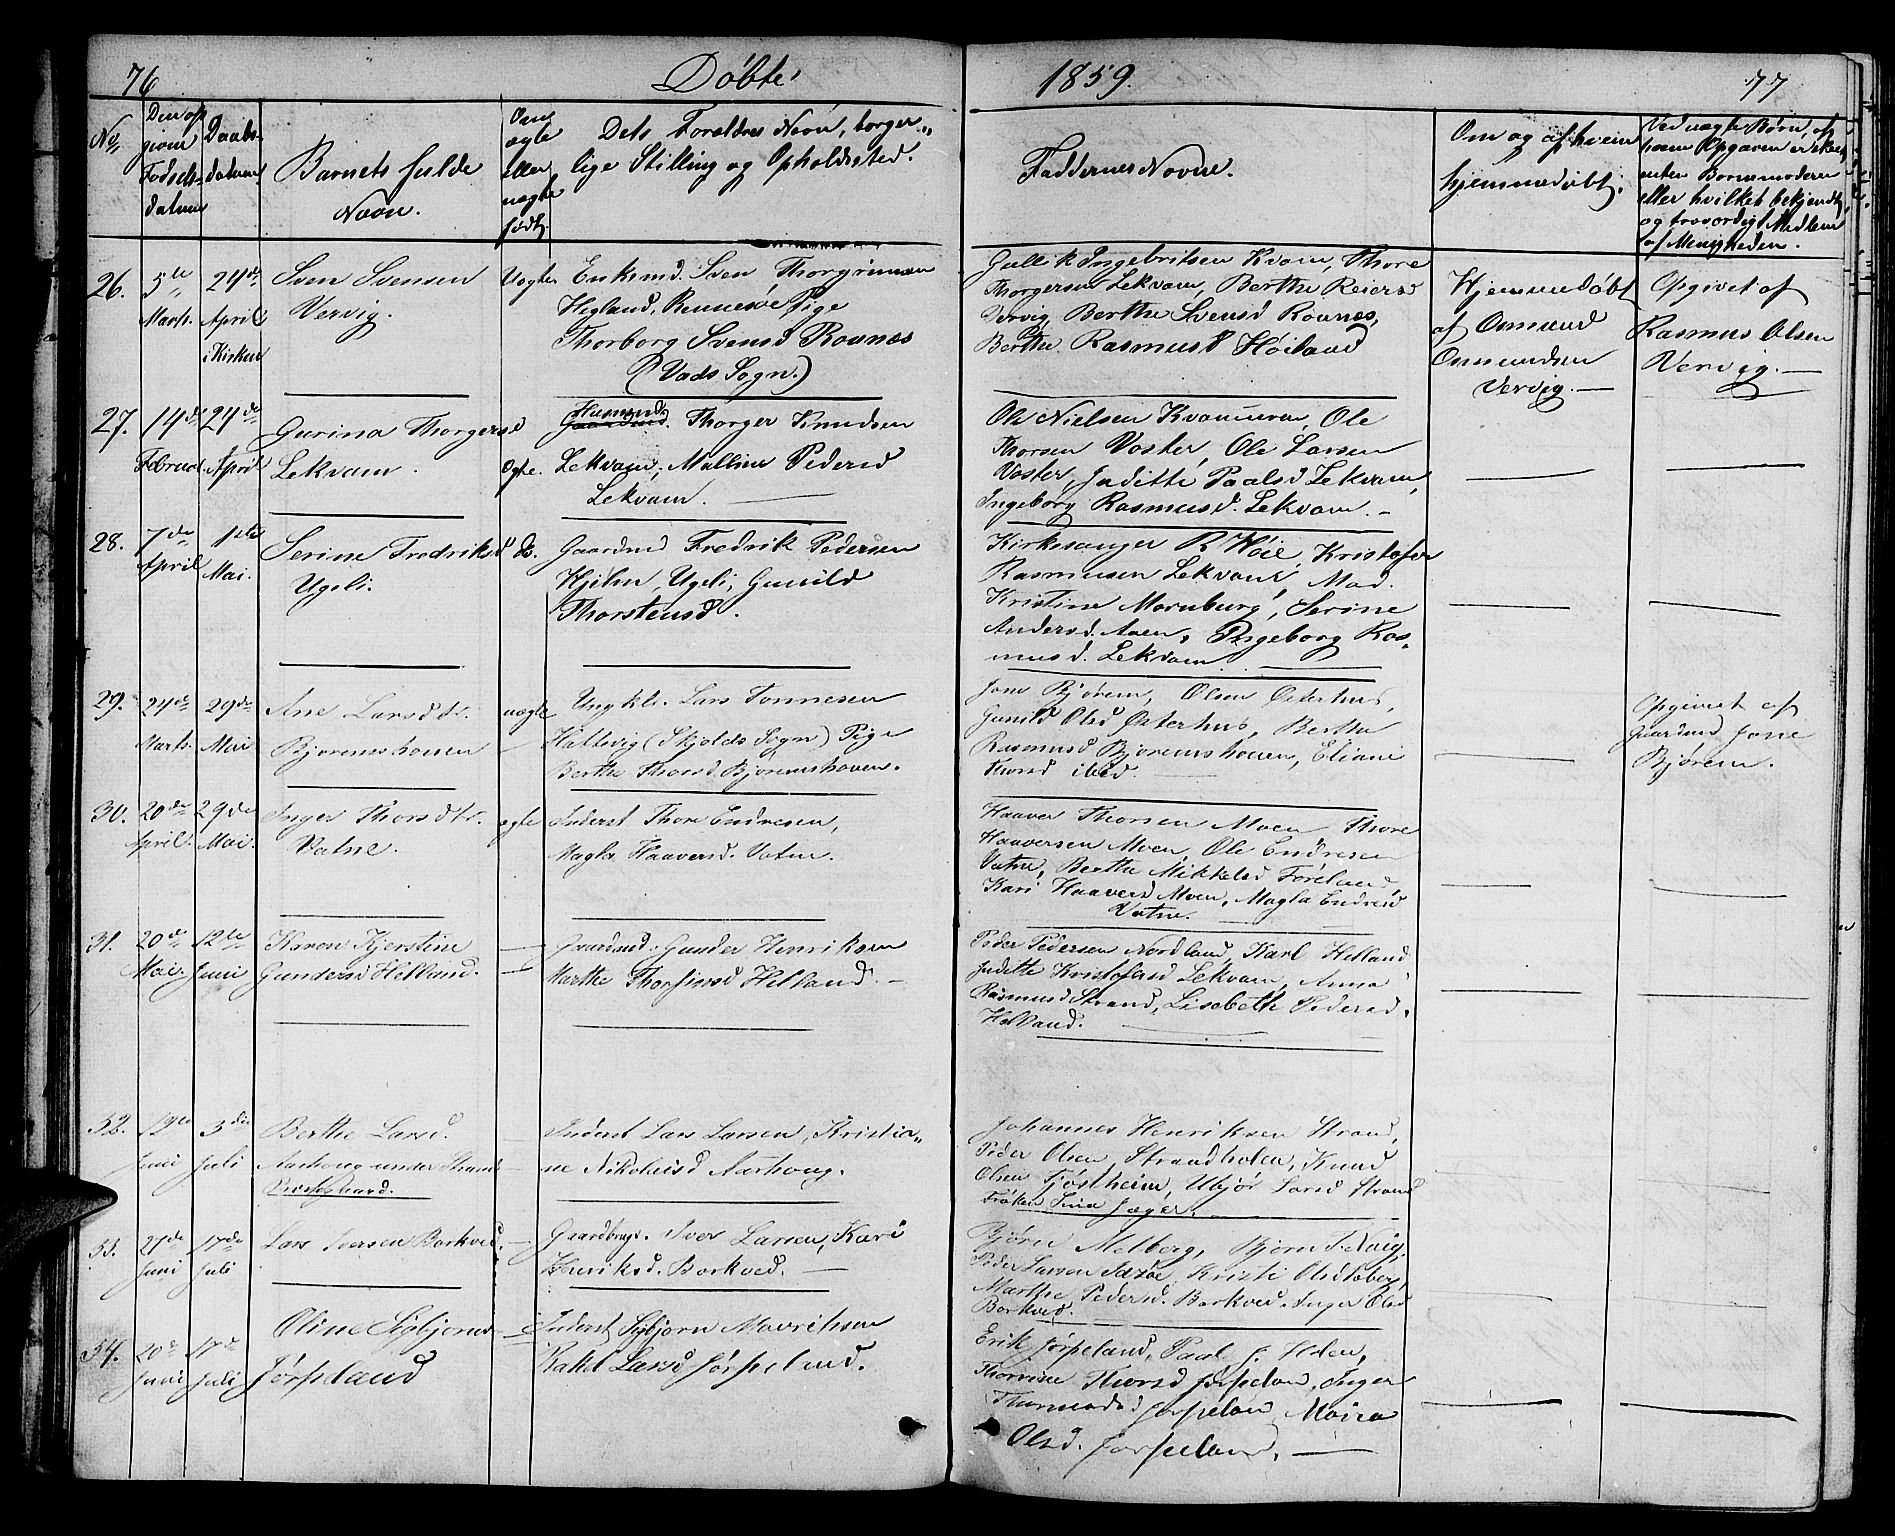 76 Døbte 1859. 77
No Den op- givne Fødsels- datum
Daabs- datum
Barnets fulde Navn.
Om ægte eller uægte født.
Dets Forældres Navn, borger-
lige Stilling og Opholdssted.
Faddernes Navne.
Om og af hvem
hjemmedøbt.
Ved uægte Børn, af
hvem Opgaven er skeet
enten Barnemoderen
eller hvilket bekjendt
og troværdigt Medlem
af Menigheden.
26. 5te Marts. 24de April i Kirken
Sven Svensen
Vervig.
Uægte
Enkemd. Sven Thorgrimsen
Hegland, Rennesøe Pige
Thorborg Svensd Roanæs
(Vads Sogn.)
Gull k Ingebritsen Kvam, Thore
Thorgersen Lekvam, Berthe Reiersd
Vervig Berthe Svensd Roanæs,
Berthe Rasmusd Høiland
Hjemmedøbt
af Osmund
Osmundsen
Vervig. —
Opgivet af
Rasmus Olsen
Vervig. —
27. 14de Februar. 24de April
Gurina Thorgersd
Lekvam.
Ægte.
Husmand
Gaardmd. Thorger Knudsen
Lekvam, Malline Pedersd
Lekvam. —
Ole Nielsen Kvamuren, Ole
Thorsen Voster, Ole Larsen
Voster, Judithe Paalsd Lekvam,
Ingeborg Rasmusd. Lekvam. —
28. 7de April 1ste Mai.
Serine Fredriksd
Ugeli.
do.
Gaardmd Fredrik Pedersen
Hjelm, Ugeli, Gunild
Thorstensd.
Kirkesanger R Høie, Kristofer
Rasmusen Lekvam, Mad.
Kristine Mornburg, Serine
Andersd. Aaen, Ingeborg Ras-
musd. Lekvam.
29. 24de Marts. 29de Mai
Ane Larsdtr.
Bjøremshoven
uægte
Ungkl. Lars Tonnesen
Hattevig (Skjolds Sogn) Pige
Berthe Thorsd. Bjøremshoven.
Jone Bjørem, Olsen Østerhus,
Gunild Olsd Østerhus, Berthe
Rasmusd Bjøremshoven, Eliane
Thorsd ibid.
Opgivet af
Gaardmd Jone
Bjørem.
30. 20de April. 29de Mai.
Inger Thorsdtr.
Vatne.
ægte
Inderst Thore Endresen,
Magla Haaversd. Vatne.
Haaver Thorsen Moen Thore
Haaversen Moen, Ole Endresen
Vatne, Berthe MikkelsdFøreland
Kari Haaversd Moen, Magla Endresd
Vatne.
31. 20de Mai. 12te Juni
Karen Kjerstine
Gundersd Helland.
Gaardmd. Gunder Henriksen
Marthe Thorfinsd Helland. —
Peder Pedersen Nordland, Karl Helland
Judithe Kristofersd Lekvam, Anna
Rasmusd Strand, Lisabeth Pedersd.
Helland.
32. 19de Juni 3die Juli
Berthe Larsd.
Aarhoug under Strand
Præstegaard.
Inderst Lars Larsen, Kristia-
ne Nikolaisd Aarhoug.
Johannes Henriksen Strand,
Peder Olsen Strandholen, Knud
Olsen Fjøstheim, Ubjør Larsd Strand
Frøken Sina Jæger.
33. 27de Juni 17de Juli
Lars Iversen Barkved.
Gaardbrgr. Iver Larsen, Kari
Henriksd. Barkved. —
Bjørn Melberg, Bjørn S. Vaig,
Peder Larsen, Kristi Olsd
Marthe Pedersd. Barkved. Inger Olsd
Barkved.
34. 20de Juni 17de Juli
Oline Sigbjørnsd
Jørpeland
Inderst Sigbjørn Mauritsen
Rakel Larsd Jørpeland.
Erik Jørpeland, Paal J. Holen,
Thorvine Thorsd Jørpelan, Inger
Thormodsd Jørpelan Maira
Olsd. Jørpelan. —